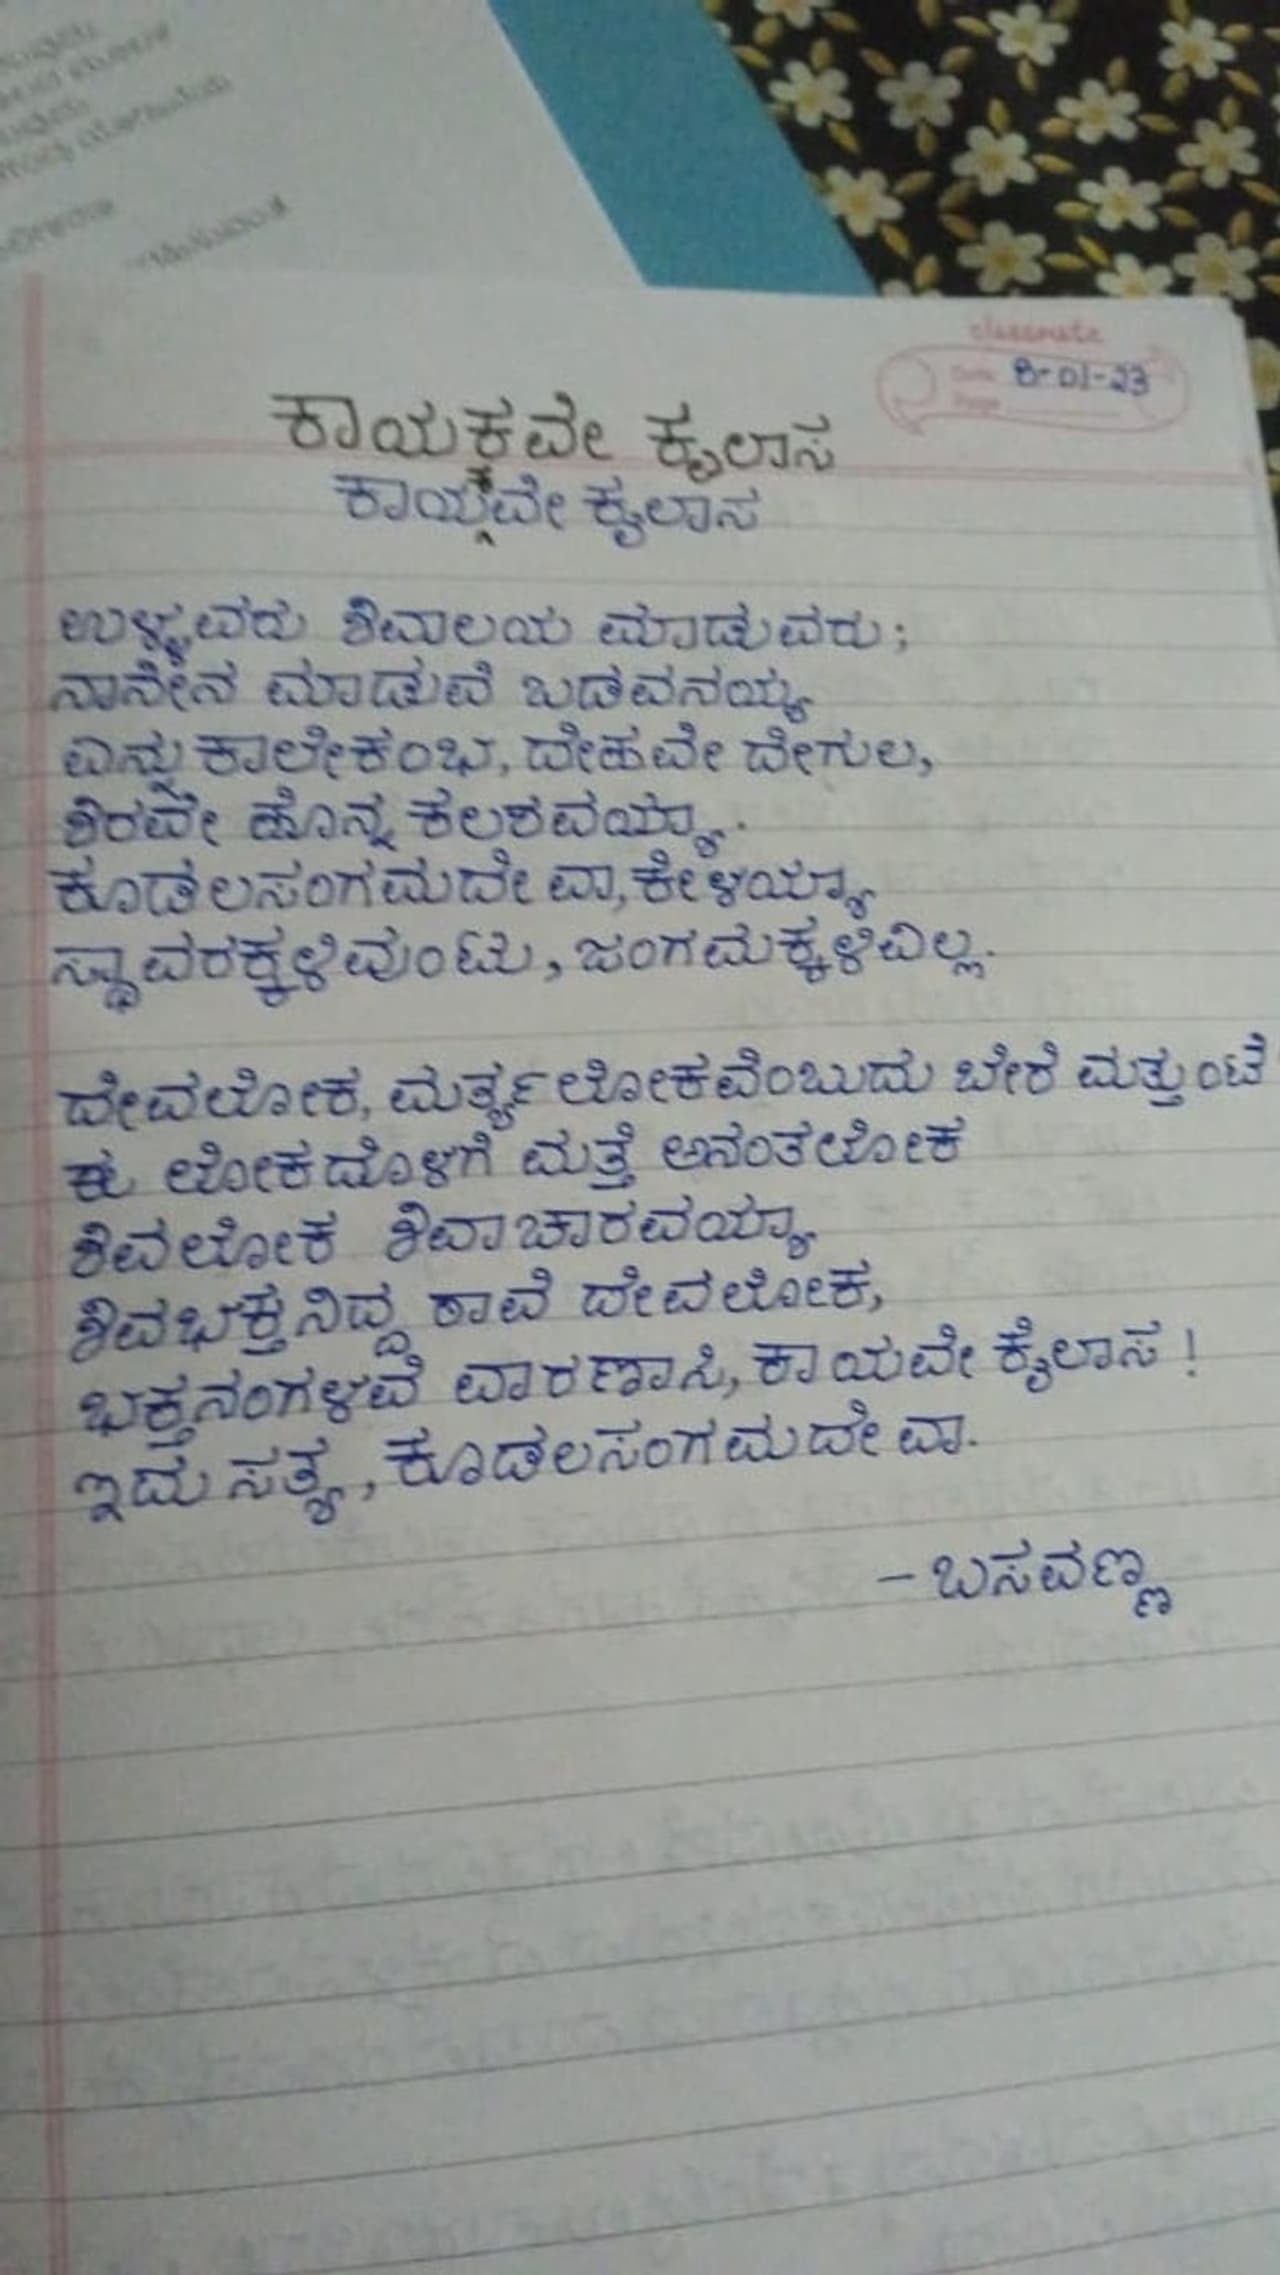 classmate
Date 8-01-23
Page
ಕಾಯಕವೇ ಕೈಲಾಸ
ಕಾಯ್ಕವೇ ಕೈಲಾಸ
ಉಳ್ಳವರು ಶಿವಾಲಯ ಮಾಡುವರು;
ನಾನೇನ ಮಾಡುವೆ ಬಡವನಯ್ಯ
ಎನ್ನ ಕಾಲೇಕಂಭ, ದೇಹವೇ ದೇಗುಲ,
ಶಿರವೇ ಹೊನ್ನ ಕಲಶವಯ್ಯಾ.
ಕೂಡಲಸಂಗಮದೇವಾ, ಕೇಳಯ್ಯಾ
ಸ್ಥಾವರಕ್ಕಳಿವುಂಟು, ಜಂಗಮಕ್ಕಳಿವಿಲ್ಲ.
ದೇವಲೋಕ, ಮರ್ತ್ಯಲೋಕವೆಂಬುದು ಬೇರೆ ಮತ್ತುಂಟೆ
ಈ ಲೋಕದೊಳಗೆ ಮತ್ತೆ ಅನಂತಲೋಕ
ಶಿವಲೋಕ ಶಿವಾಚಾರವಯ್ಯಾ
ಶಿವಭಕ್ತನಿದ್ದ ಠಾವೆ ದೇವಲೋಕ,
ಭಕ್ತನಂಗಳವೆ ವಾರಣಾಸಿ, ಕಾಯವೇ ಕೈಲಾಸ!
ಇದು ಸತ್ಯ, ಕೂಡಲಸಂಗಮದೇವಾ.
- ಬಸವಣ್ಣ